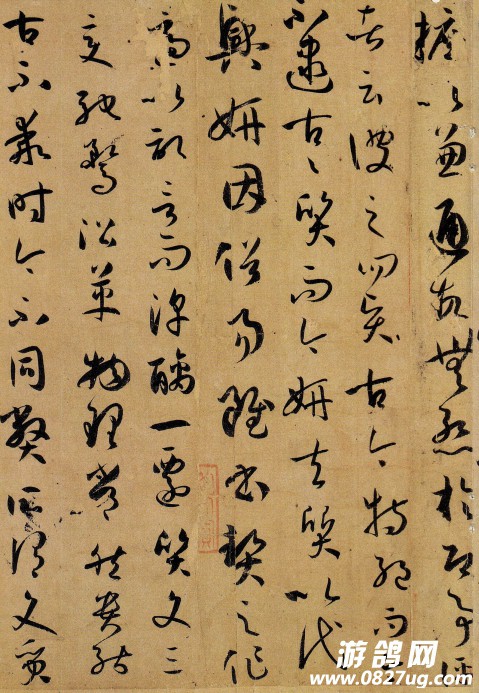 推以兼通故無慚於即事評
者云彼之四賢古今特絕而今
不逮古々質而今妍夫質以代
興妍因俗易雖書契之作
適以記言而淳醨一遷質文三
變馳騖沿革物理常然貴能
古不乖時今不同弊所謂文質
游鸽网
www.0827ug.com